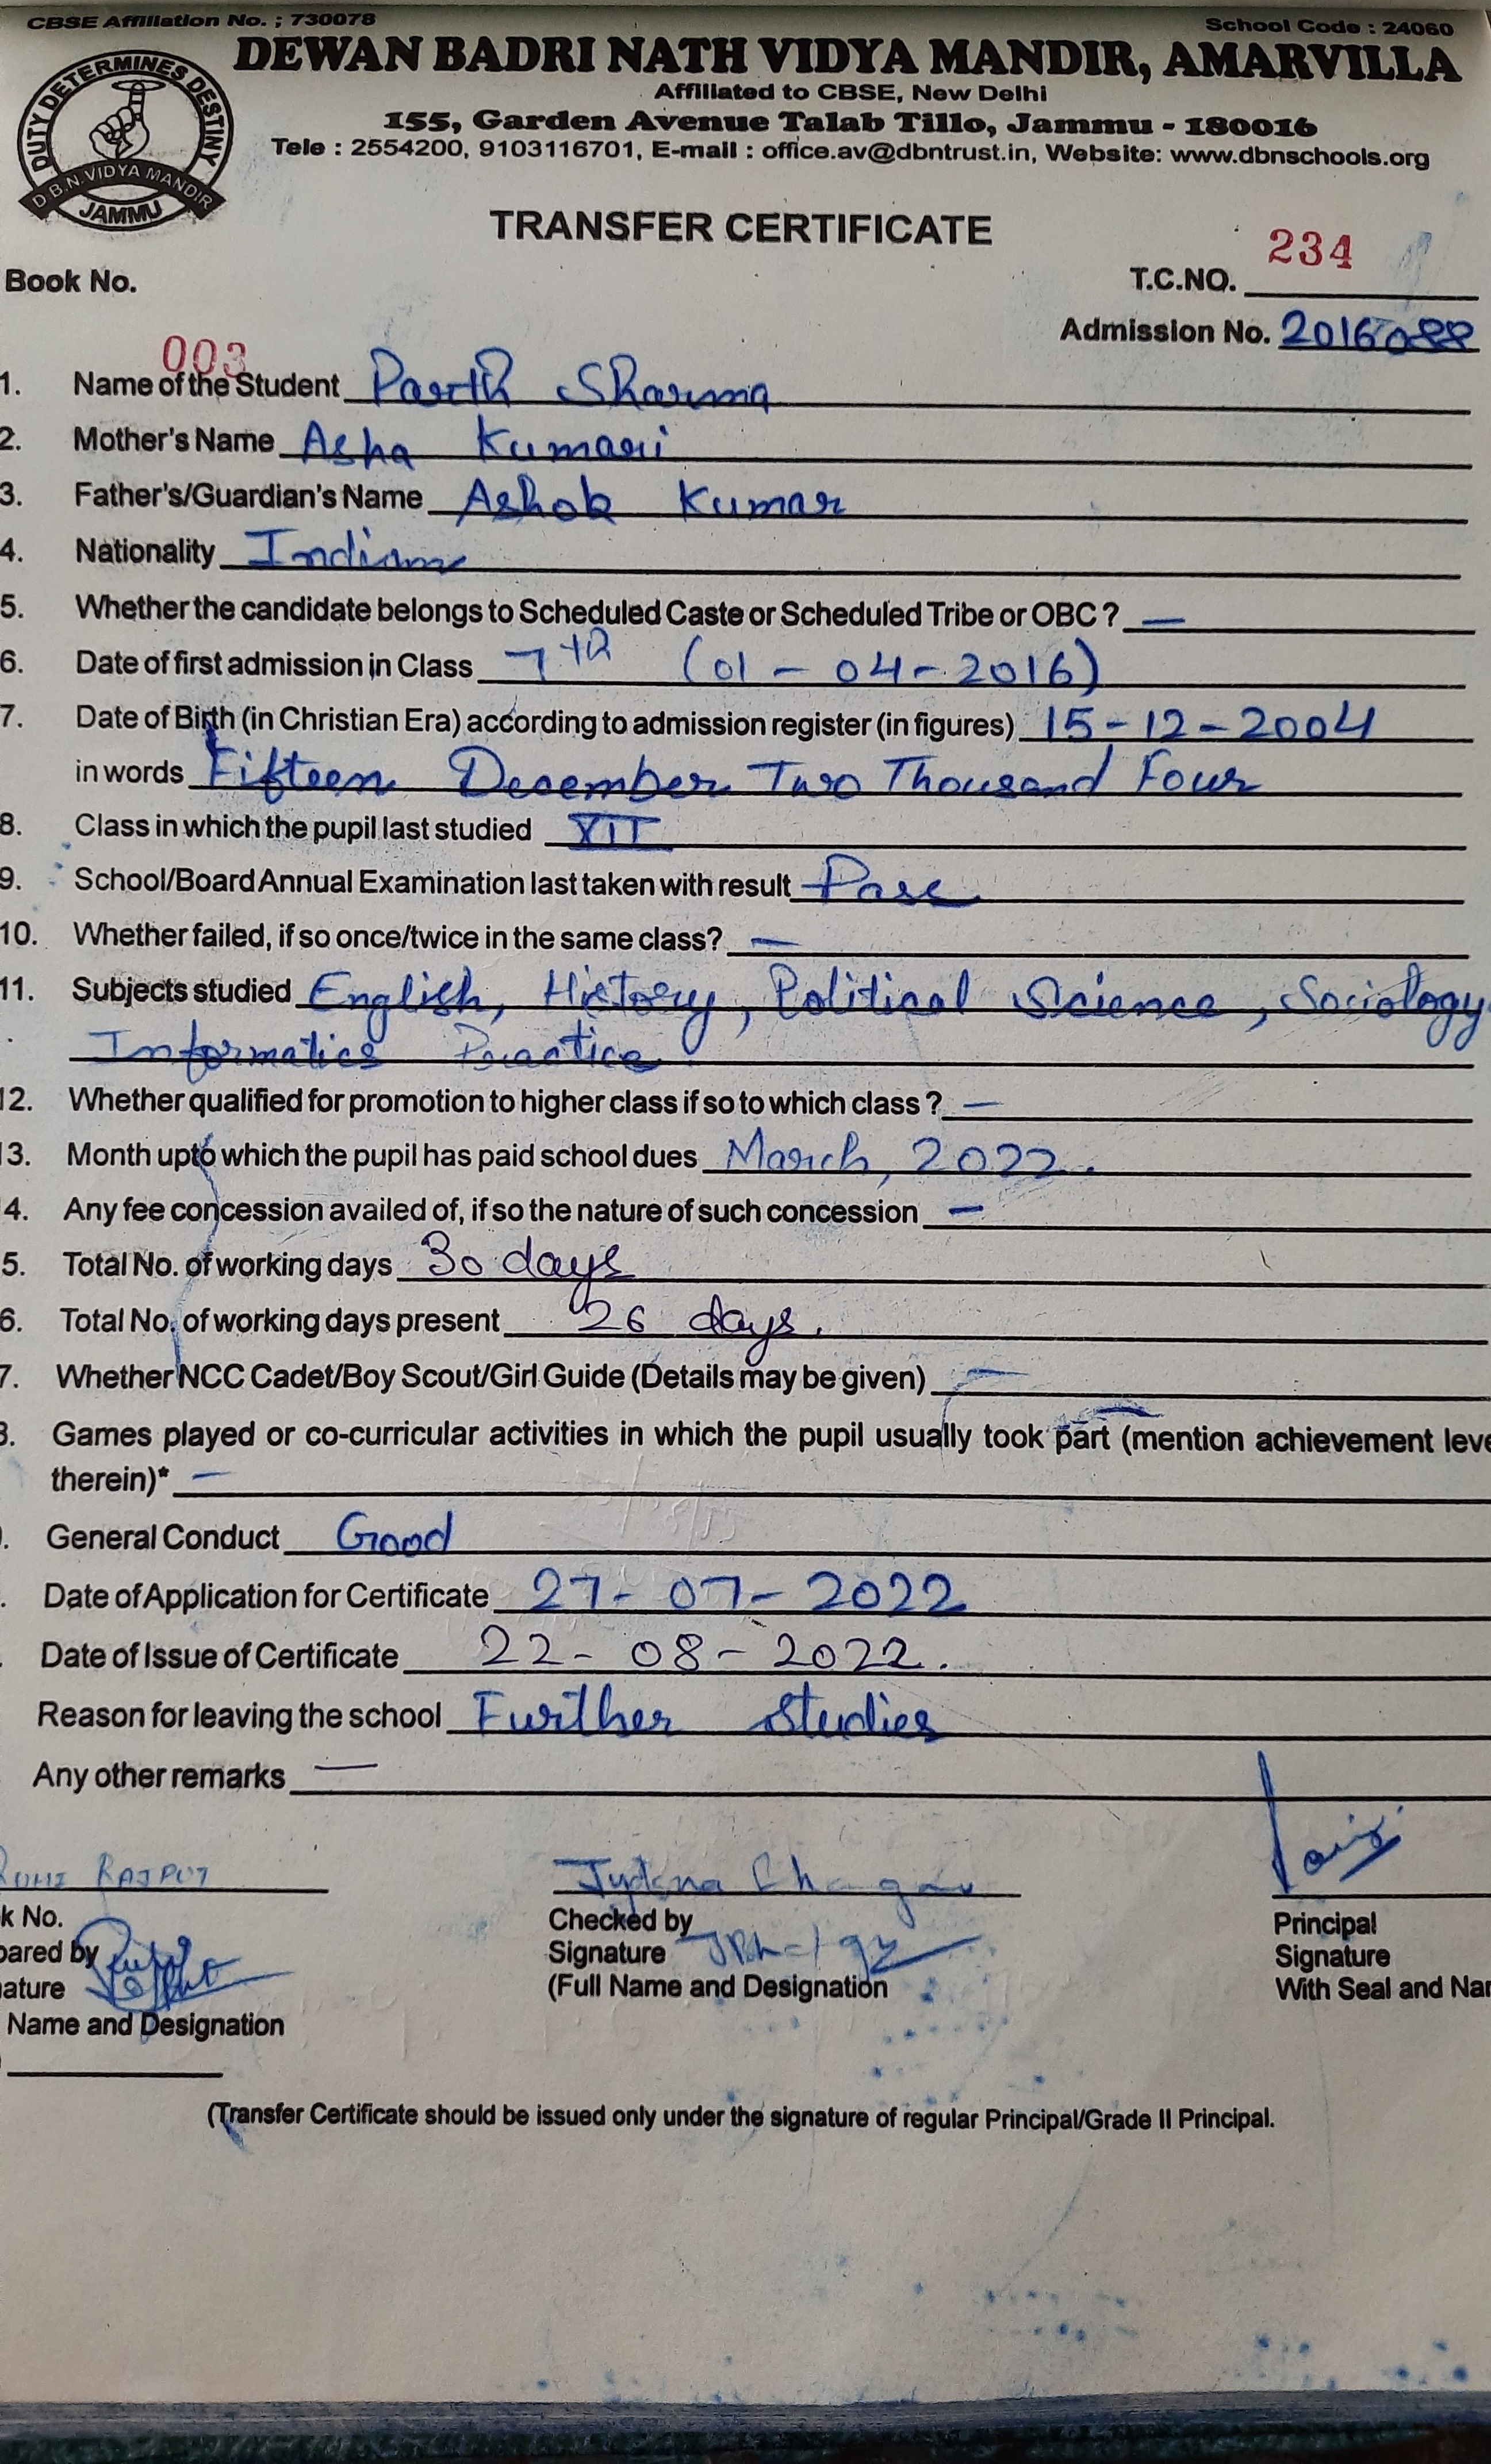 CBSE Affiliation No. ; 730078 School Code : 24060
DEWAN BADRI NATH VIDYA MANDIR, AMARVILLA
Affiliated to CBSE, New Delhi
155, Garden Avenue Talab Tillo, Jammu - 180016
Tele : 2554200, 9103116701, E-mail : office.av@dbntrust.in, Website: www.dbnschools.org
DUTY DETERMINES DESTINY
D.B.N. VIDYA MANDIR
JAMMU
TRANSFER CERTIFICATE
234
Book No. T.C.NO.
Admission No. 2016088
003
1. Name of the Student Parth Sharma
2. Mother's Name Asha Kumari
3. Father's/Guardian's Name Ashok Kumar
4. Nationality Indian
5. Whether the candidate belongs to Scheduled Caste or Scheduled Tribe or OBC ? —
6. Date of first admission in Class 7th (01 - 04 - 2016)
7. Date of Birth (in Christian Era) according to admission register (in figures) 15-12-2004
in words Fifteen December Two Thousand Four
8. Class in which the pupil last studied XII
9. School/Board Annual Examination last taken with result Pass
10. Whether failed, if so once/twice in the same class? —
11. Subjects studied English, History, Political Science, Sociology
Informatics Practice
12. Whether qualified for promotion to higher class if so to which class ? —
13. Month upto which the pupil has paid school dues March, 2022.
4. Any fee concession availed of, if so the nature of such concession —
5. Total No. of working days 30 days
6. Total No. of working days present 26 days.
7. Whether NCC Cadet/Boy Scout/Girl Guide (Details may be given) —
8. Games played or co-curricular activities in which the pupil usually took part (mention achievement leve
therein)* —
. General Conduct Good
. Date of Application for Certificate 27-07-2022
. Date of Issue of Certificate 22-08-2022.
Reason for leaving the school Further Studies
Any other remarks —
RAJPUT
k No. Checked by Principal
pared by Signature Signature
nature (Full Name and Designation With Seal and Nar
Name and Designation
(Transfer Certificate should be issued only under the signature of regular Principal/Grade II Principal.